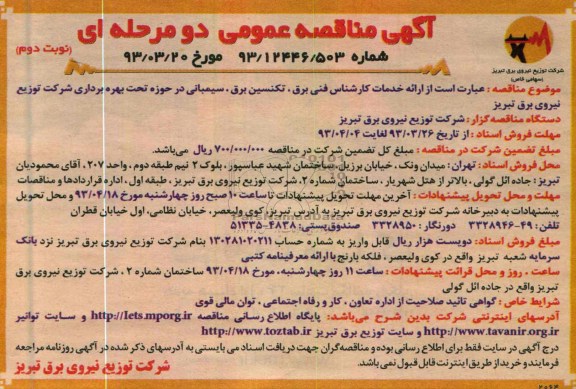 آگهی مناقصه عمومی دو مرحله ای
(نوبت دوم)
شماره ۹۳/۱۲۴۴۶/۵۰۳ مورخ ۹۳/۰۳/۲۰
شرکت توزیع نیروی برق تبریز
(سهامی خاص)
موضوع مناقصه : عبارت است از ارائه خدمات کارشناس فنی برق ، تکنسین برق ، سیمبانی در حوزه تحت بهره برداری شرکت توزیع
نیروی برق تبریز
دستگاه مناقصه گزار : شرکت توزیع نیروی برق تبریز
مهلت فروش اسناد : از تاریخ ۹۳/۰۳/۲۶ لغایت ۹۳/۰۴/۰۴
مبلغ تضمین شرکت در مناقصه : مبلغ کل تضمین شرکت در مناقصه ۷۰۰/۰۰۰/۰۰۰ ریال می‌باشد.
محل فروش اسناد : تهران : میدان ونک ، خیابان برزیل، ساختمان شهید عباسپور ، بلوک ۲ نیم طبقه دوم ، واحد ۲۰۷ ، آقای محمودیان
تبریز : جاده ائل گولی ، بالاتر از هتل شهریار ، ساختمان شماره ۲، شرکت توزیع نیروی برق تبریز، طبقه اول ، اداره قراردادها و مناقصات
مهلت و محل تحویل پیشنهادات : آخرین مهلت تحویل پیشنهادات تا ساعت ۱۰ صبح روز چهارشنبه مورخ ۹۳/۰۴/۱۸ و محل تحویل
پیشنهادات به دبیرخانه شرکت توزیع نیروی برق تبریز به آدرس تبریز، کوی ولیعصر، خیابان نظامی، اول خیابان قطران
تلفن: ۴۹-۳۳۲۸۹۴۶ دورنگار : ۳۳۲۸۹۵۰ صندوق‌پستی: ۴۸۳۸-۵۱۳۳۵
مبلغ فروش اسناد: دویست هزار ریال قابل واریز به شماره حساب ۱۳۰۲۸۱۰۲۰۲۱۱ بنام شرکت توزیع نیروی برق تبریز نزد بانک
سرمایه شعبه تبریز واقع در کوی ولیعصر ، فلکه بارنج با ارائه معرفینامه کتبی
ساعت ، روز و محل قرائت پیشنهادات : ساعت ۱۱ روز چهارشنبه، مورخ ۹۳/۰۴/۱۸ ساختمان شماره ۲ ، شرکت توزیع نیروی برق
تبریز واقع در جاده ائل گولی
شرایط خاص : گواهی تائید صلاحیت از اداره تعاون ، کار و رفاه اجتماعی ، توان مالی قوی
آدرسهای اینترنتی شرکت بدین شرح می‌باشد: پایگاه اطلاع رسانی مناقصه http://Iets.mporg.ir و سایت توانیر
http://www.tavanir.org.ir و سایت توزیع برق تبریز http://www.toztab.ir
درج آگهی در سایت فقط برای اطلاع رسانی بوده و مناقصه‌گران جهت دریافت اسناد می بایستی به آدرسهای ذکر شده در آگهی روزنامه مراجعه
فرمایند و خرید از طریق اینترنت قابل قبول نمی باشد.
شرکت توزیع نیروی برق تبریز